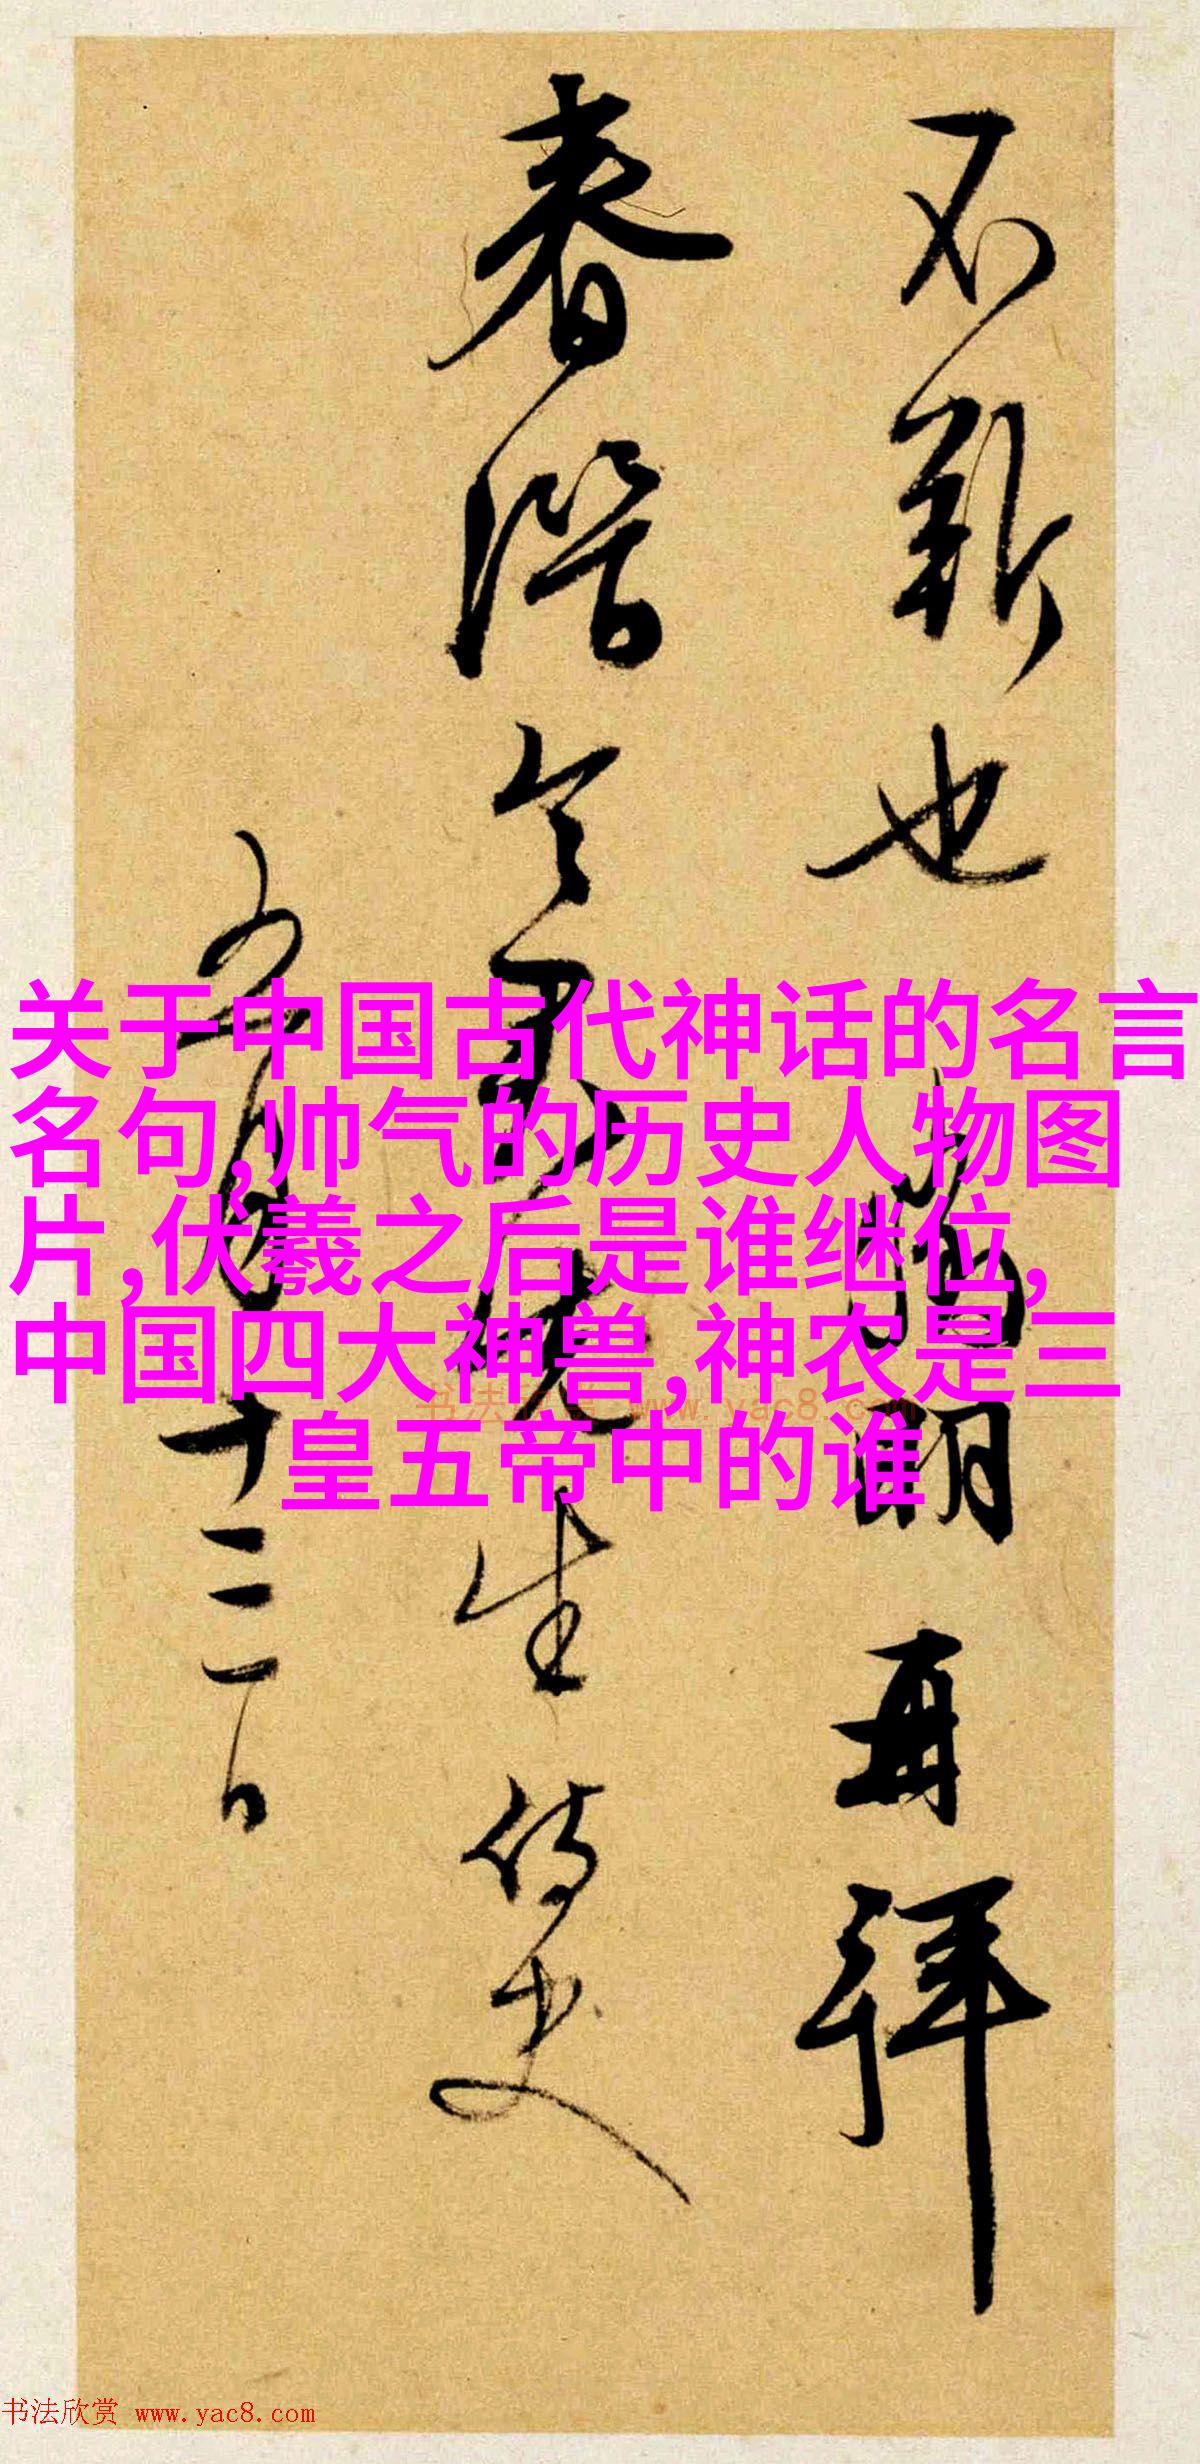 不靳也 徵明再拜
春潛令君先生侍史
五月十三日
关于中国古代神话的名言
名句,帅气的历史人物图
片,伏羲之后是谁继位,
中国四大神兽,神农是三
皇五帝中的谁
书法欣赏 www.yac8.com
书法欣赏 www.yac8.com